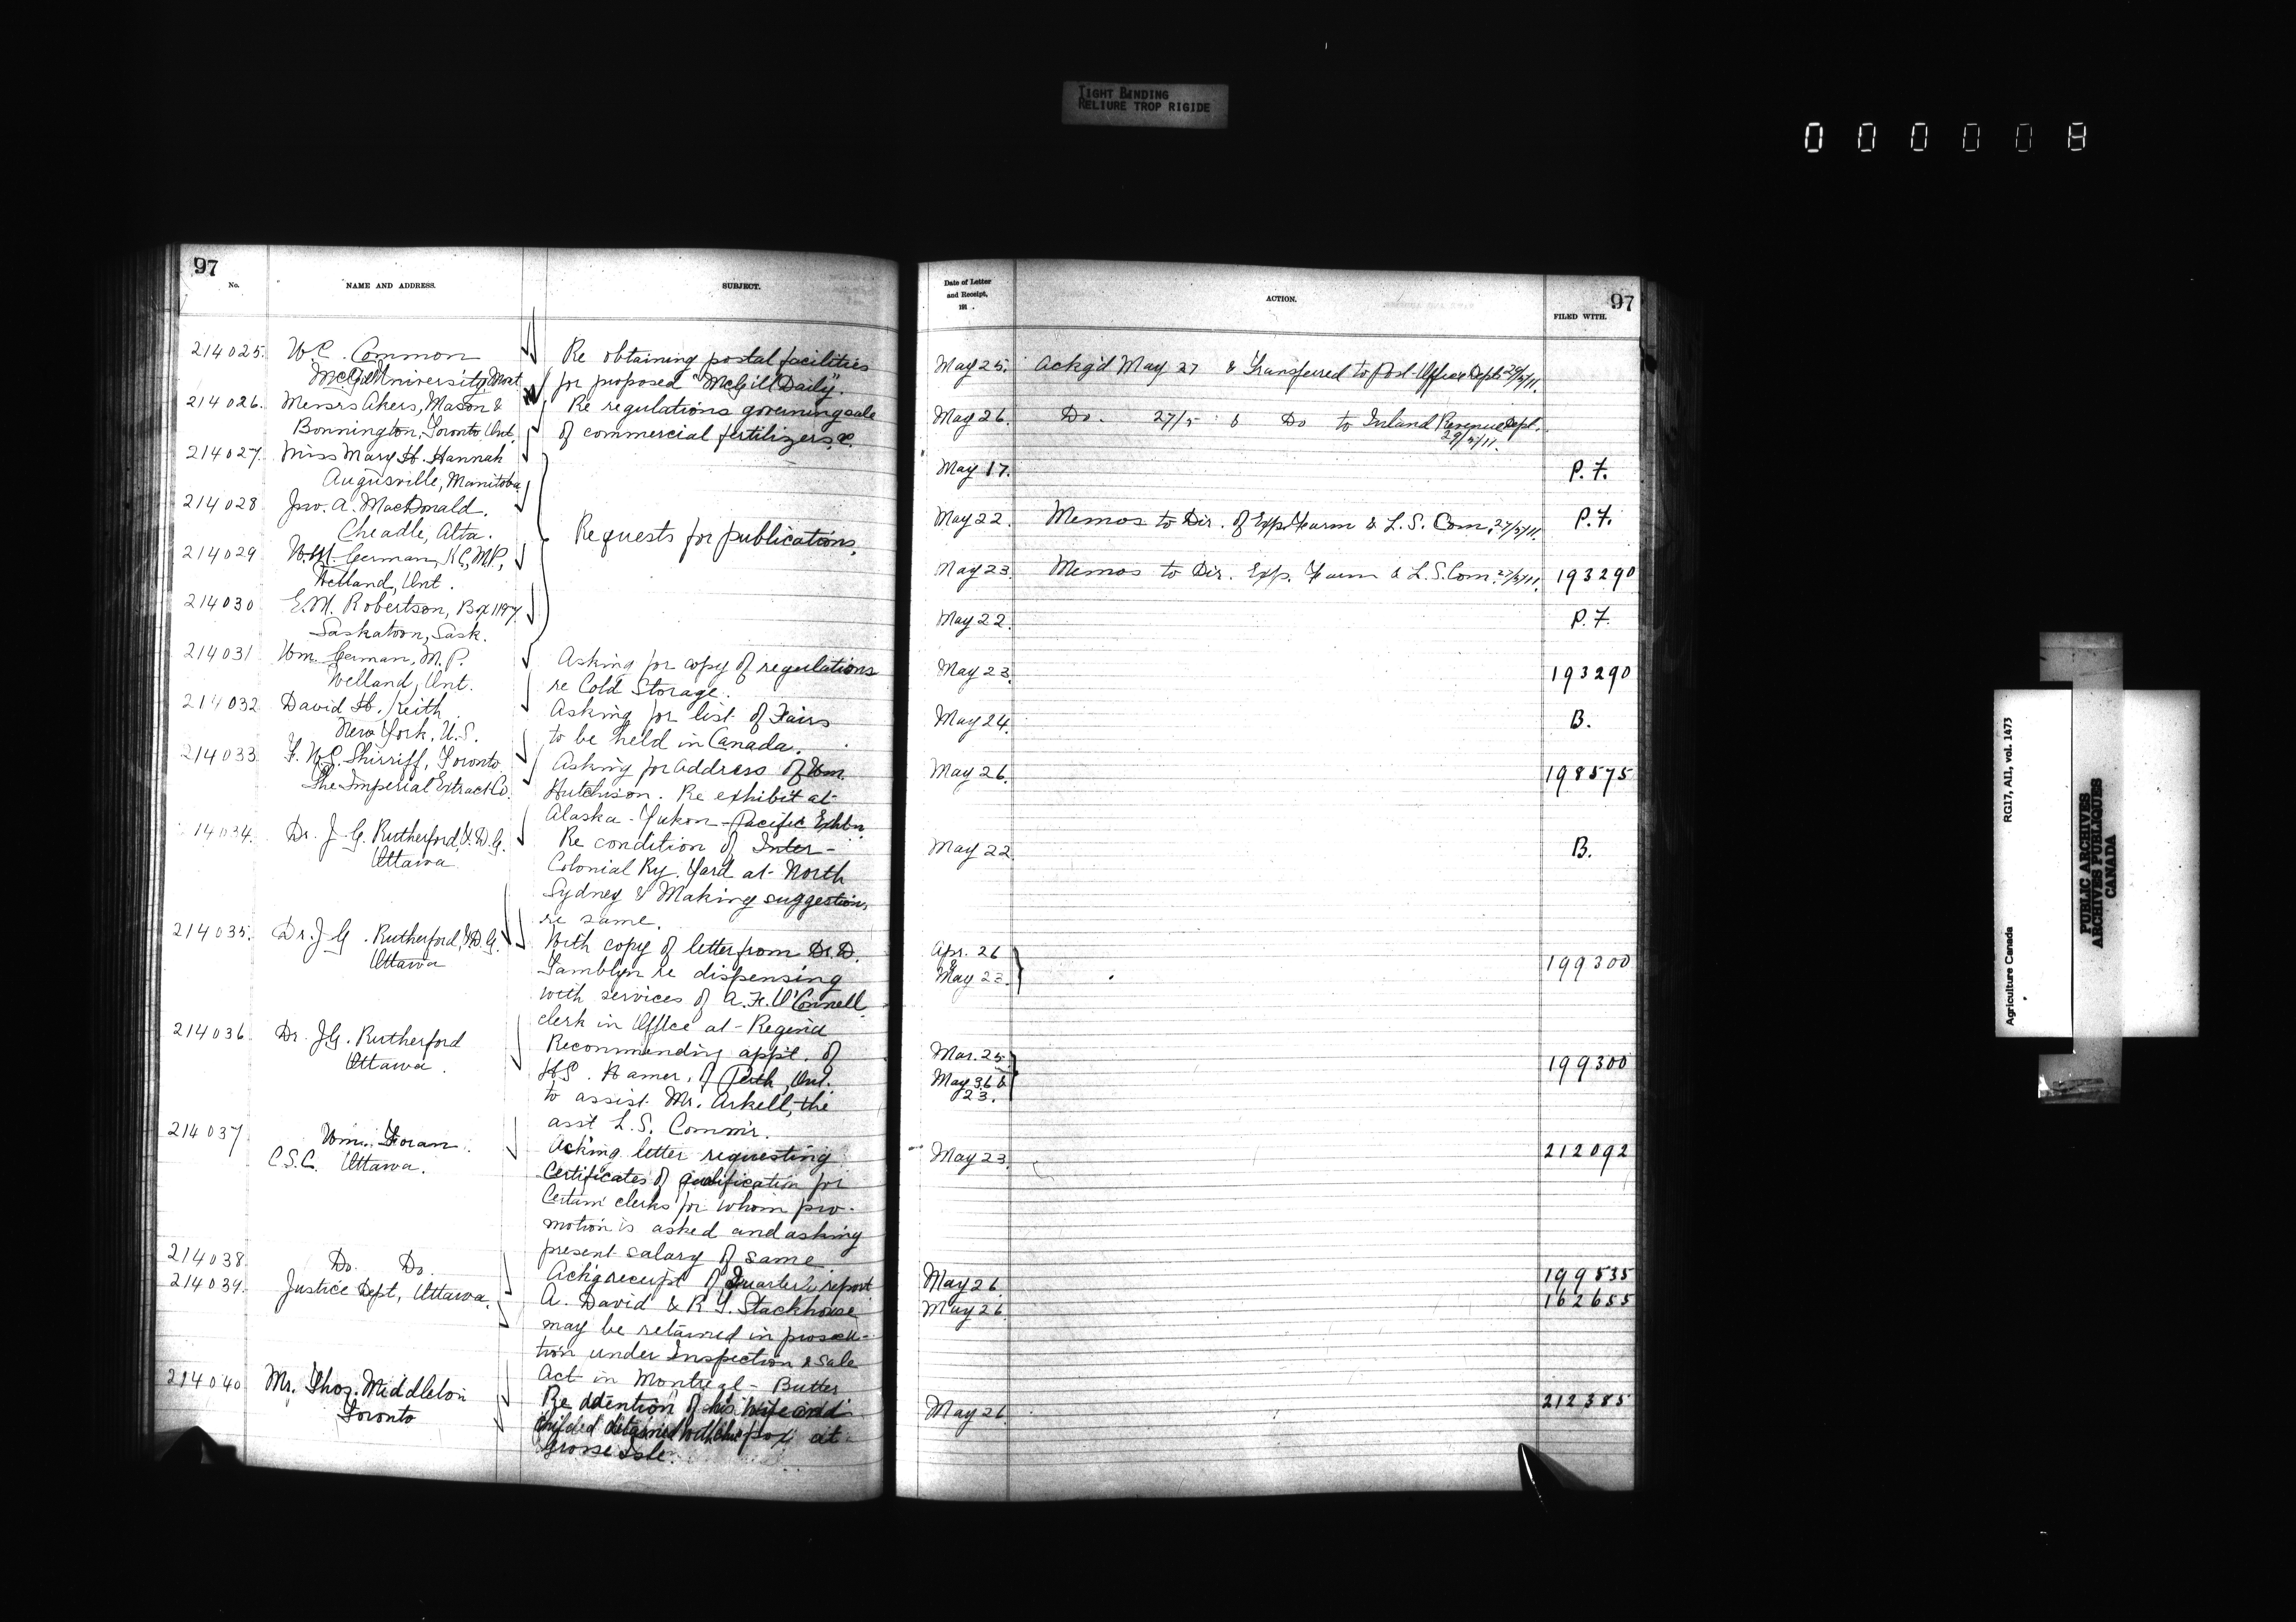 TIGHT BINDING
RELIURE TROP RIGIDE
000008
97
No. NAME AND ADDRESS. SUBJECT.
214025. W.C. Common Re obtaining postal facilities
McGill University, Mont. for proposed "McGill Daily".
214026. Messrs Akers, Mason & Re regulations governing sale
Bonnington, Toronto Ont. of commercial fertilizers &.
214027. Miss Mary H. Hannah
Augusville, Manitoba
214028 Jno. A. MacDonald.
Cheadle, Alta. Requests for publications.
214029 W.M. German, K.C, M.P,
Welland, Ont.
214030 E.M. Robertson, Box 1197
Saskatoon, Sask.
214031 Wm. German, M.P. Asking for copy of regulations
Welland, Ont. re Cold Storage.
214032 David H. Keith Asking for list of Fairs
New York, U.S. to be held in Canada.
214033 F. W.C. Shirriff, Toronto Asking for address of Wm.
The Imperial Extract Co. Hutchison. Re exhibit at
Alaska-Yukon-Pacific Exhbn.
14034. Dr. J.G. Rutherford, V.D.G. Re condition of Inter-
Ottawa Colonial Ry. Yard at North
Sydney & Making suggestions
re same.
214035. Dr. J.G. Rutherford, V.D.G. With copy of letter from Dr. D.
Ottawa Tamblyn re dispensing
with services of A.F. O'Connell
clerk in Office at Regina
214036 Dr. J.G. Rutherford Recommending appt. of
Ottawa. H.S. Hamer, of Perth, Ont.
to assist Mr. Arkell, the
asst L.S. Commr.
214037 Wm. Foran Ack'ing letter requesting
C.S.C. Ottawa. Certificates of qualification for
Certain clerks for whom pro-
motion is asked and asking
present salary of same
214038 Do. Do. Ackg receipt of Quarterly report
214039. Justice Dept, Ottawa. A. David & R Y. Stackhouse
may be retained in prosecu-
tion under Inspection & Sale
Act in Montreal - Butter
214040 Mr. Thos. Middleton Re detention of his wife and
Toronto child detained with chic pox at
Grosse Isle.
Date of Letter
and Receipt,
191 .
ACTION. FILED WITH.
97
May 25. Ackg'd May 27 & Transferred to Post Office Dept 29/5/11.
May 26. Do. 27/5 & Do to Inland Revenue Dept.
29/5/11.
May 17. P.F.
May 22. Memos to Dir. of Exp. Farm & L.S. Com. 27/5/11. P.F.
May 23. Memos to Dir. Exp. Farm & L.S. Com. 27/5/11. 193290
May 22. P.F.
May 23. 193290
May 24. B.
May 26. 198575
May 22 B.
Apr. 26
&
May 23 199300
Mar. 25
May 3, 6 &
23. 199300
May 23. 212092
May 26 199535
May 26 162655
May 26 212385
Agriculture Canada RG17, AII, vol. 1473
PUBLIC ARCHIVES
ARCHIVES PUBLIQUES
CANADA